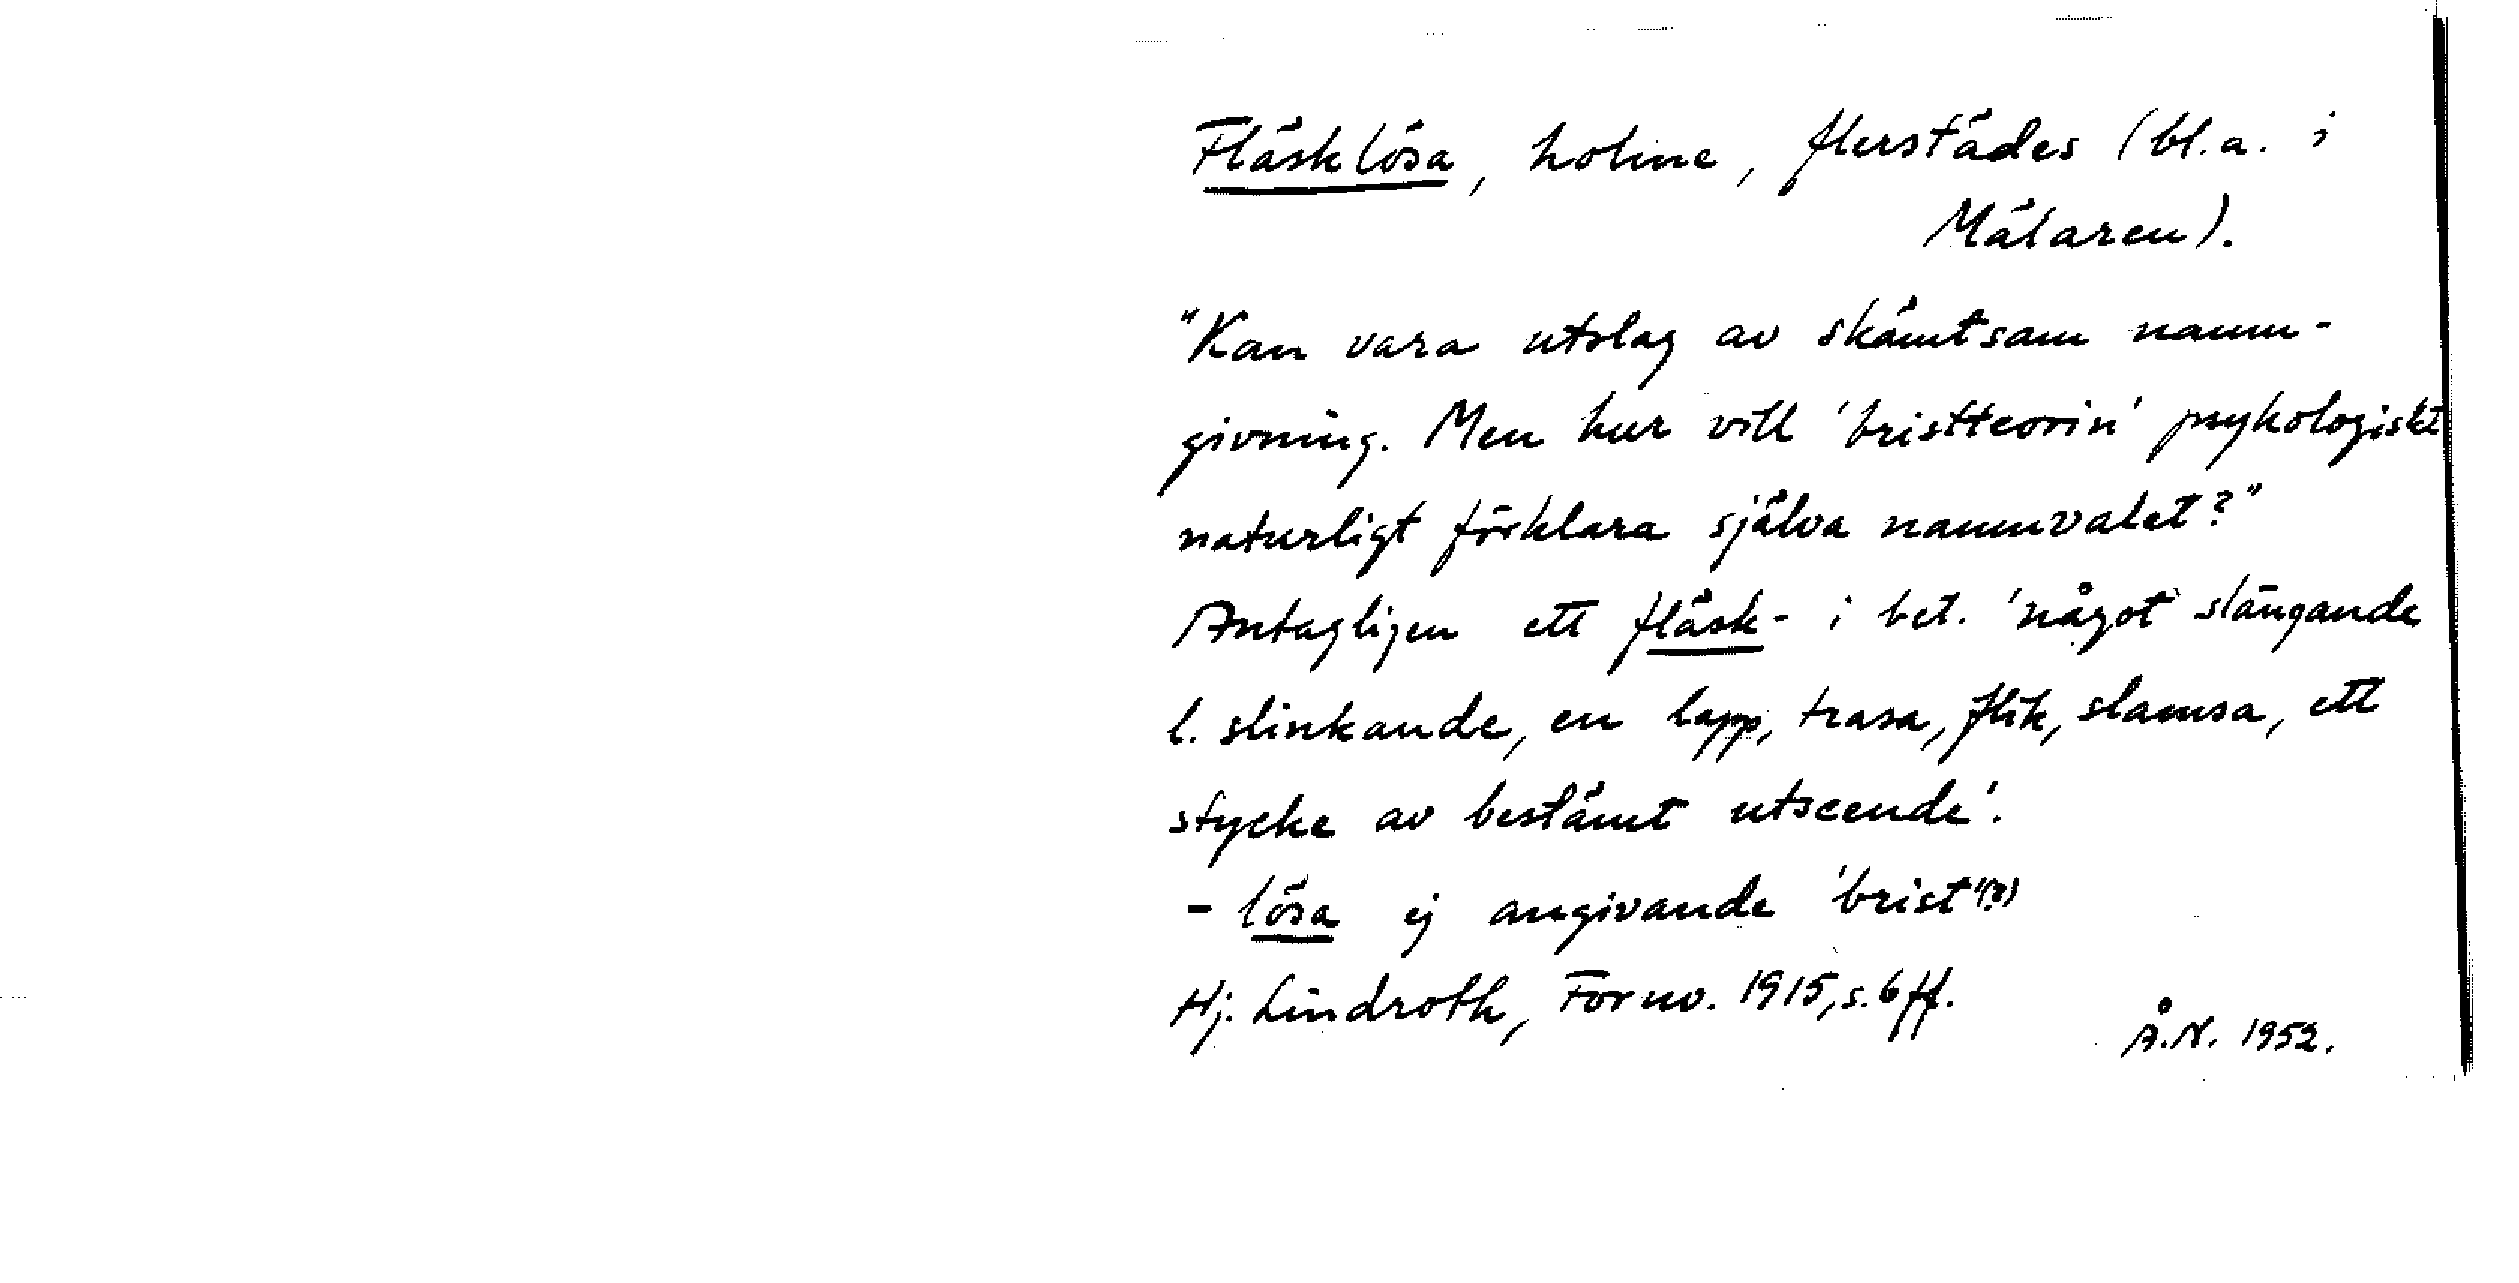 Fläsklösa, holme, flerstädes (bl.a. i
Mälaren).
"Kan vara utslag av skämtsam namn-
givning. Men hur vill 'bristteorin' psykologiskt
naturligt förklara själva namnvalet?"
Antagligen ett fläsk- i bet. 'något slängande
l. slinkande, en lapp, trasa, flik, slamsa, ett
stycke av bestämt utseende'.
- lösa ej angivande 'brist'(?)
Hj. Lindroth, Fornv. 1915, s. 6 ff.
Å.N. 1952.